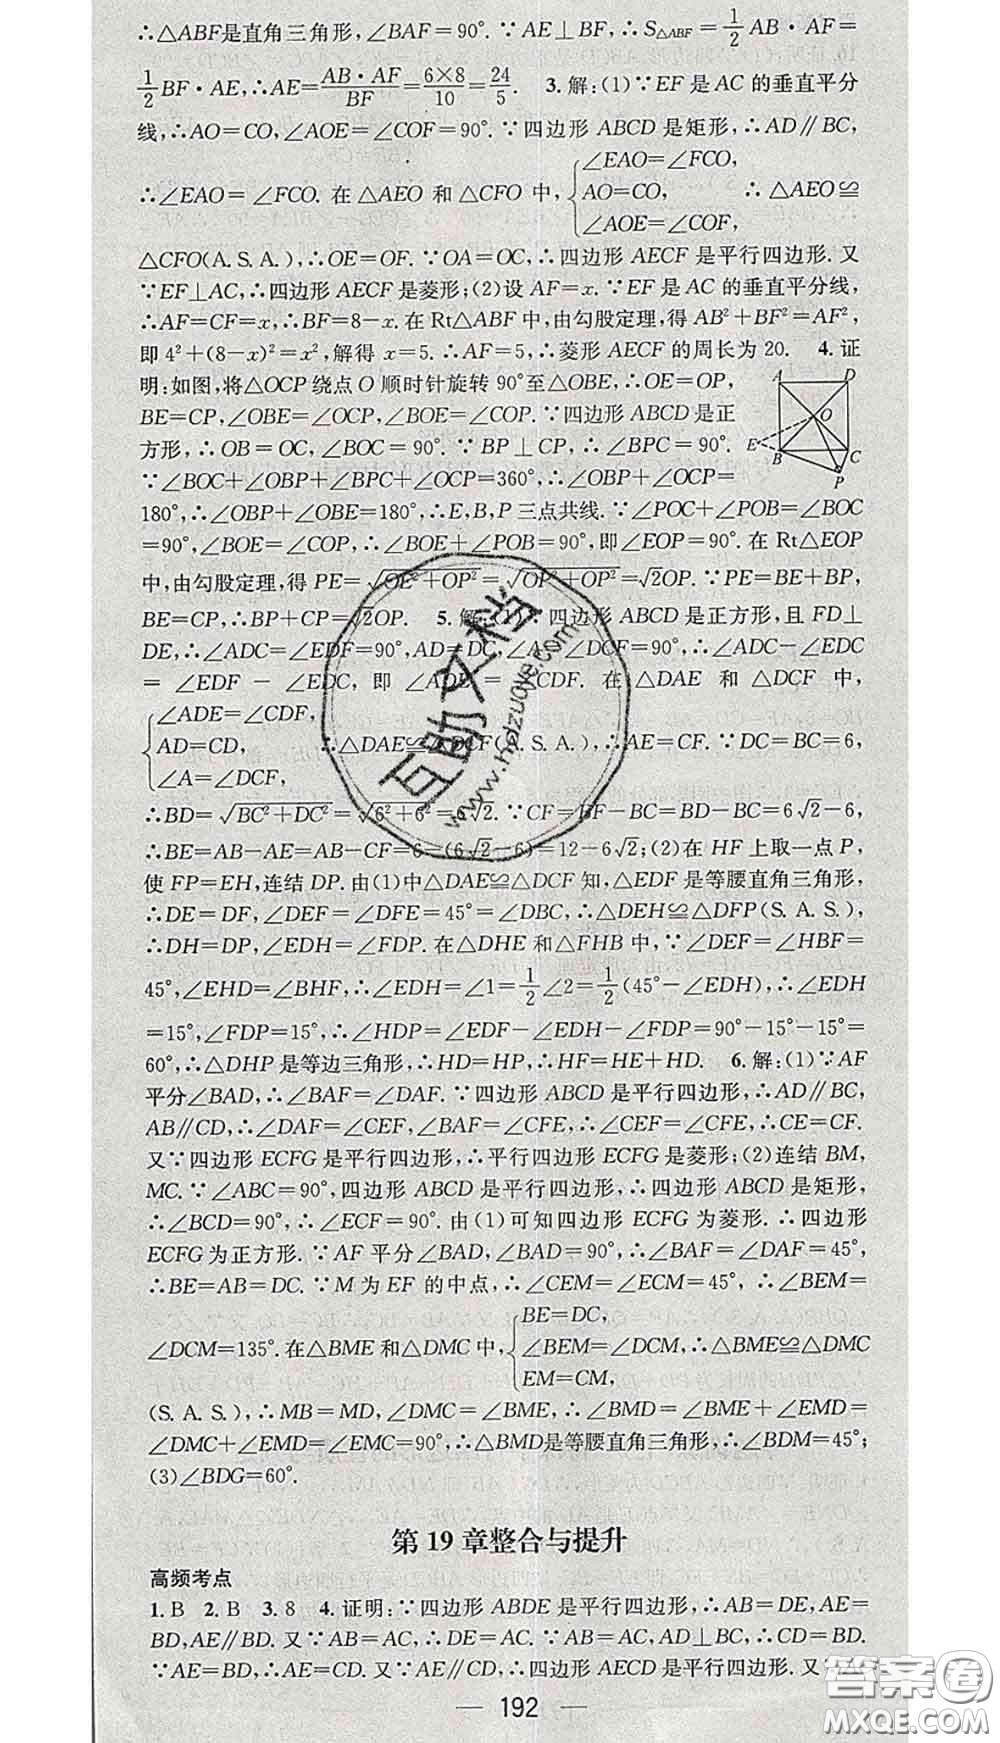 ∴△ABF是直角三角形,∠BAF=90°.∵AE⊥BF,∴S△ABF=1/2AB·AF=
1/2BF·AE,∴AE=AB·AF/BF=6×8/10=24/5. 3.解:(1)∵EF是AC的垂直平分
线,∴AO=CO,∠AOE=∠COF=90°.∵四边形ABCD是矩形,∴AD∥BC,
∴∠EAO=∠FCO.在△AEO和△CFO中,{∠EAO=∠FCO, AO=CO, ∠AOE=∠COF, ∴△AEO≌
△CFO(A.S.A.),∴OE=OF.∵OA=OC,∴四边形AECF是平行四边形.又
∵EF⊥AC,∴四边形AECF是菱形;(2)设AF=x.∵EF是AC的垂直平分线,
∴AF=CF=x,∴BF=8-x.在Rt△ABF中,由勾股定理,得AB²+BF²=AF²,
即4²+(8-x)²=x²,解得x=5.∴AF=5,∴菱形AECF的周长为20. 4.证
明:如图,将△OCP绕点O顺时针旋转90°至△OBE,∴OE=OP,
BE=CP,∠OBE=∠OCP,∠BOE=∠COP.∵四边形ABCD是正
方形,∴OB=OC,∠BOC=90°.∵BP⊥CP,∴∠BPC=90°.
∵∠BOC+∠OBP+∠BPC+∠OCP=360°,∴∠OBP+∠OCP=
A D
O
E
B C
P
180°,∴∠OBP+∠OBE=180°,∴E,B,P三点共线.∵∠POC+∠POB=∠BOC
=90°,∠BOE=∠COP,∴∠BOE+∠POB=90°,即∠EOP=90°.在Rt△EOP
中,由勾股定理,得PE=√(OE²+OP²)=√(OP²+OP²)=√2OP.∵PE=BE+BP,
BE=CP,∴BP+CP=√2OP. 5.解:(1)∵四边形ABCD是正方形,且FD⊥
DE,∴∠ADC=∠EDF=90°,AD=DC,∠A=∠DCF=90°,∴∠ADC-∠EDC
=∠EDF-∠EDC,即∠ADE=∠CDF.在△DAE和△DCF中,
{∠ADE=∠CDF, AD=CD, ∠A=∠DCF, ∴△DAE≌△DCF(A.S.A.),∴AE=CF.∵DC=BC=6,
∴BD=√(BC²+DC²)=√(6²+6²)=6√2.∵CF=BF-BC=BD-BC=6√2-6,
∴BE=AB-AE=AB-CF=6-(6√2-6)=12-6√2;(2)在HF上取一点P,
使FP=EH,连结DP.由(1)中△DAE≌△DCF知,△EDF是等腰直角三角形,
∴DE=DF,∠DEF=∠DFE=45°=∠DBC,∴△DEH≌△DFP(S.A.S.),
∴DH=DP,∠EDH=∠FDP.在△DHE和△FHB中,∵∠DEF=∠HBF=
45°,∠EHD=∠BHF,∴∠EDH=∠1=1/2∠2=1/2(45°-∠EDH),∴∠EDH
=15°,∠FDP=15°,∴∠HDP=∠EDF-∠EDH-∠FDP=90°-15°-15°=
60°,∴△DHP是等边三角形,∴HD=HP,∴HF=HE+HD. 6.解:(1)∵AF
平分∠BAD,∴∠BAF=∠DAF.∵四边形ABCD是平行四边形,∴AD∥BC,
AB∥CD,∴∠DAF=∠CEF,∠BAF=∠CFE,∴∠CEF=∠CFE,∴CE=CF.
又∵四边形ECFG是平行四边形,∴四边形ECFG是菱形;(2)连结BM,
MC.∵∠ABC=90°,四边形ABCD是平行四边形,∴四边形ABCD是矩形,
∴∠BCD=90°,∴∠ECF=90°.由(1)可知四边形ECFG为菱形.∴四边形
ECFG为正方形.∵AF平分∠BAD,∠BAD=90°,∴∠BAF=∠DAF=45°,
∴BE=AB=DC.∵M为EF的中点,∴∠CEM=∠ECM=45°,∴∠BEM=
∠DCM=135°.在△BME和△DMC中,{BE=DC, ∠BEM=∠DCM, EM=CM, ∴△BME≌△DMC
(S.A.S.),∴MB=MD,∠DMC=∠BME,∴∠BMD=∠BME+∠EMD=
∠DMC+∠EMD=∠EMC=90°,∴△BMD是等腰直角三角形,∴∠BDM=45°;
(3)∠BDG=60°.
第19章整合与提升
高频考点
1.B 2.B 3.8 4.证明:∵四边形ABDE是平行四边形,∴AB=DE,AE=
BD,AE∥BD.又∵AB=AC,∴DE=AC.∵AB=AC,AD⊥BC,∴CD=BD.
∵AE=BD,∴AE=CD.又∵AE∥CD,∴四边形AECD是平行四边形.又∵
192
互助文档
www.hdzuoye.com
答案圈
MXQE.COM